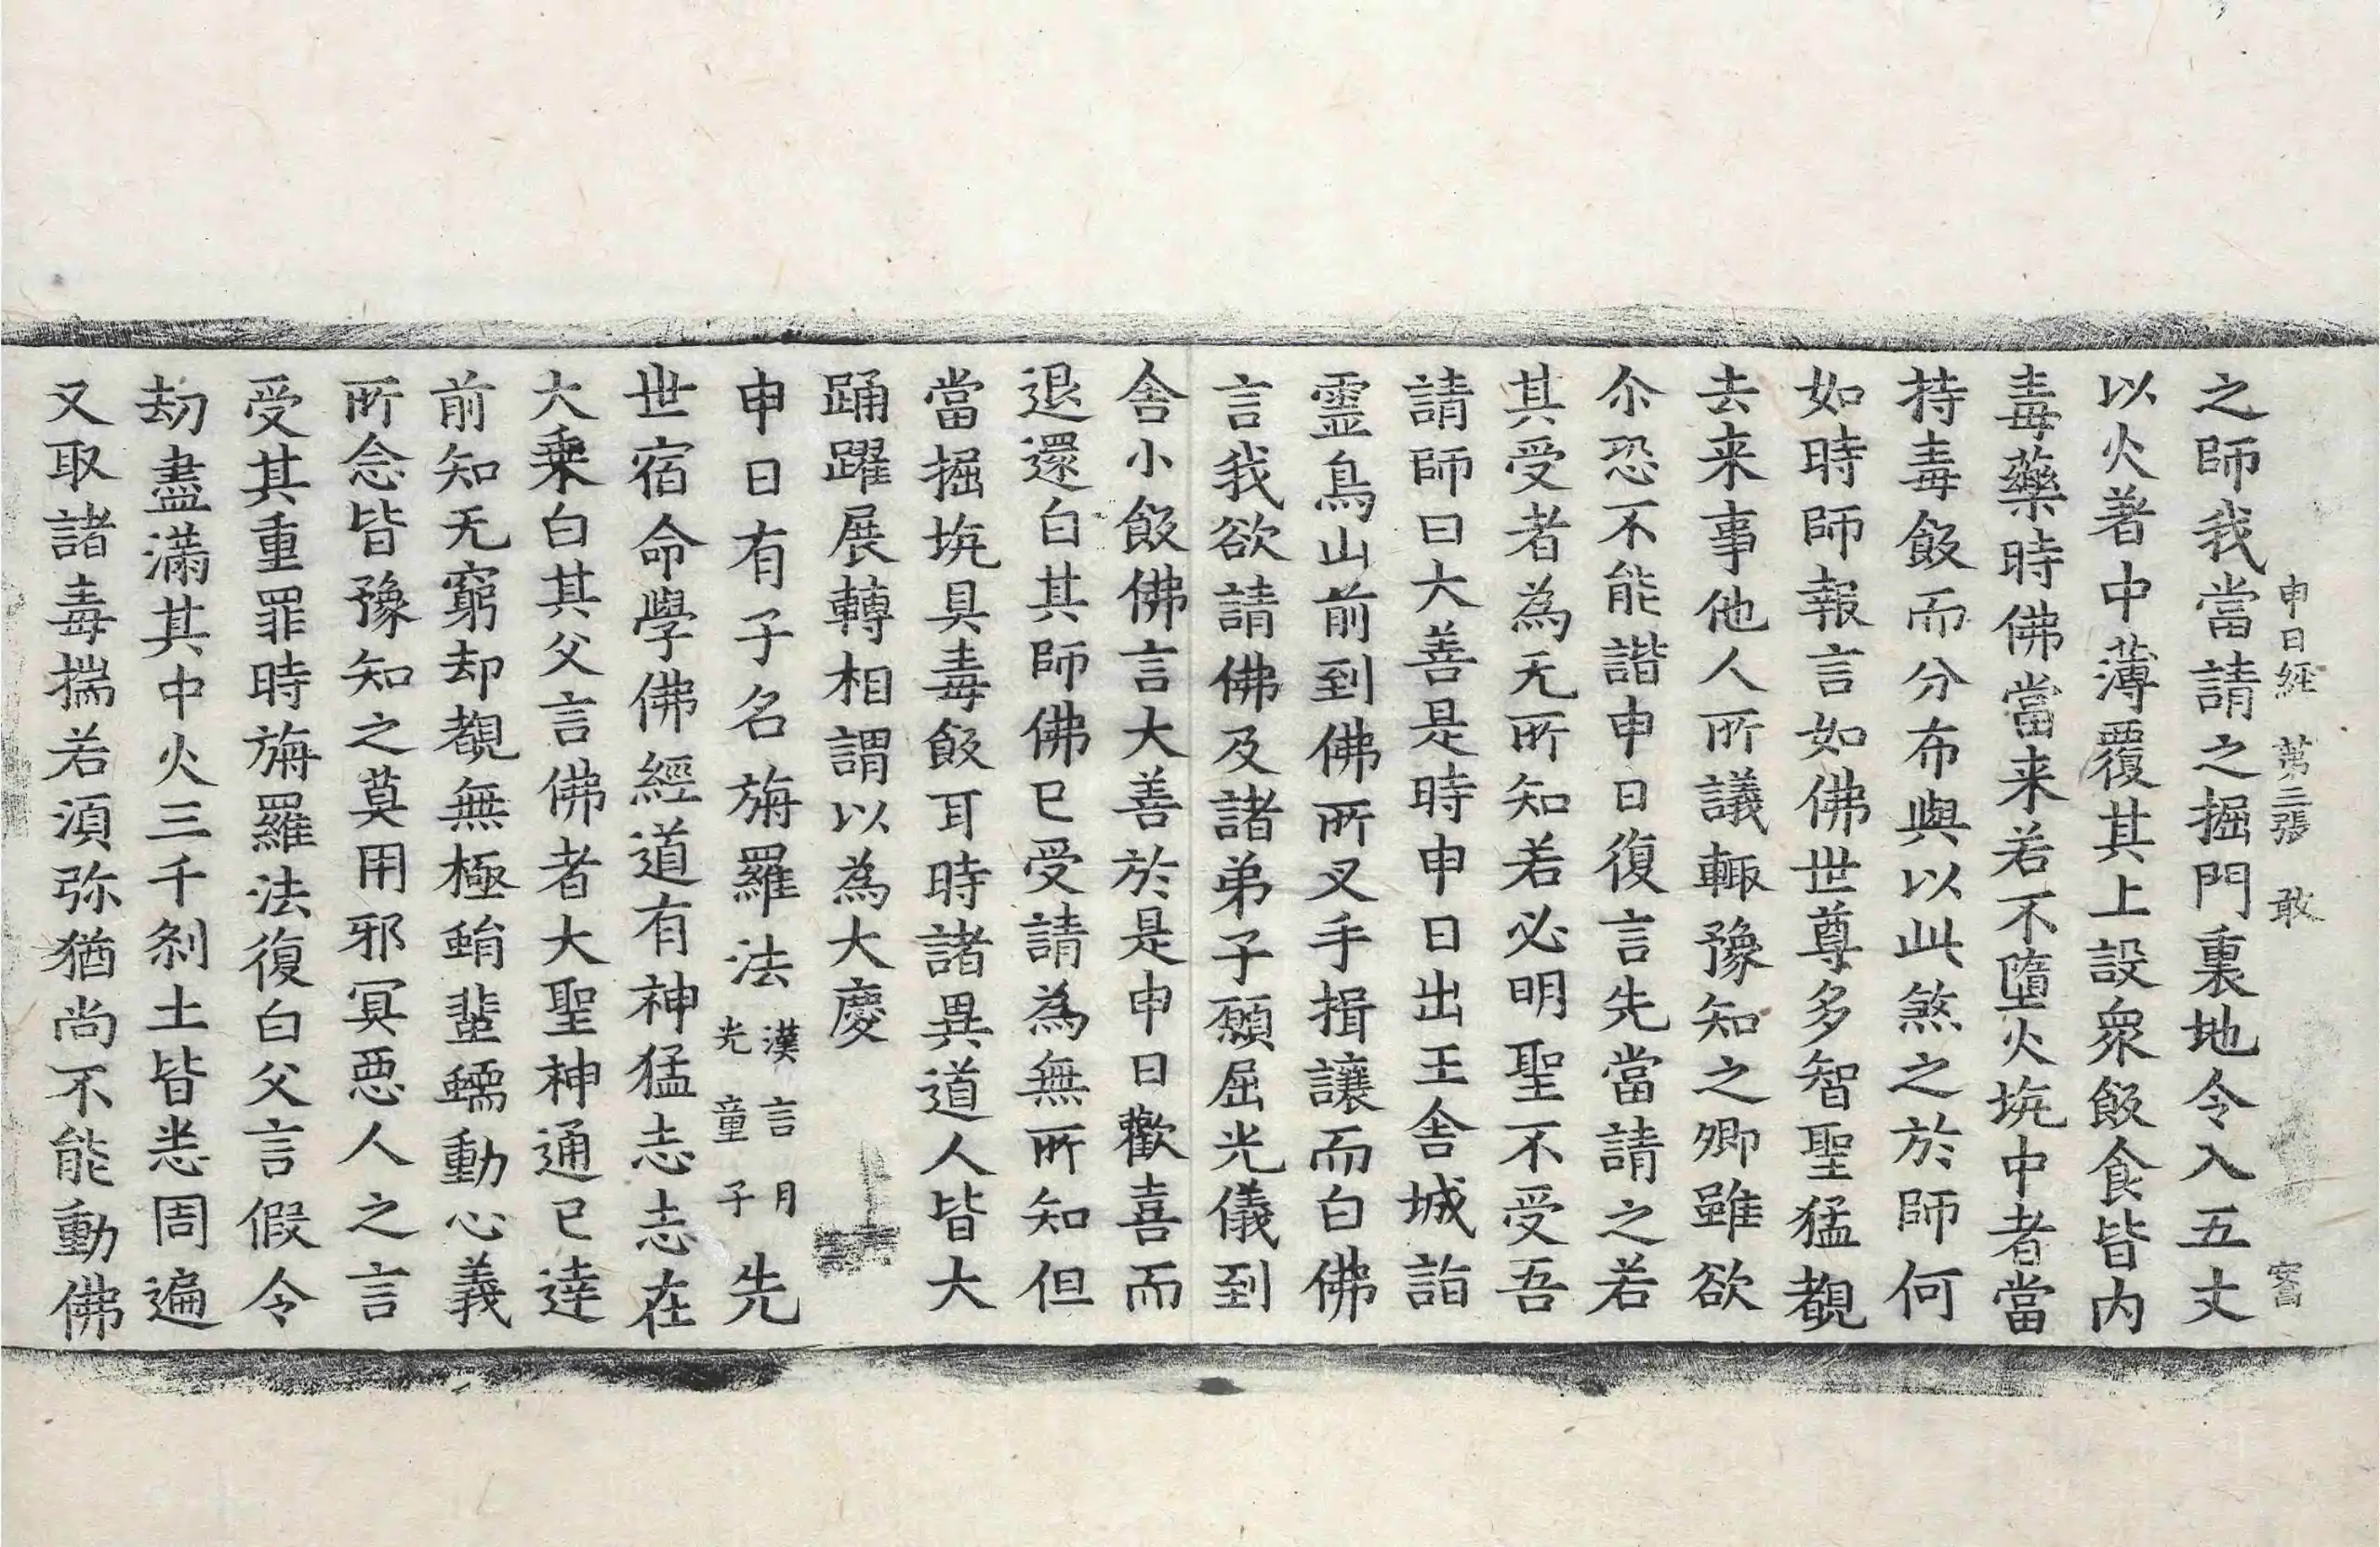 申日經 第三張 敢
之師我當請之掘門裏地令入五丈
以火著中薄覆其上設衆飯食皆內
毒藥時佛當来若不墮火坑中者當
持毒飯而分布與以此煞之於師何
如時師報言如佛世尊多智聖猛覩
去来事他人所議輙豫知之卿雖欲
尒恐不能諧申日復言先當請之若
其受者為无所知若必明聖不受吾
請師曰大善是時申日出王舍城詣
靈鳥山前到佛所叉手揖讓而白佛
言我欲請佛及諸弟子願屈光儀到
舍小飯佛言大善於是申日歡喜而
退還白其師佛已受請為無所知但
當掘坑具毒飯耳時諸異道人皆大
踊躍展轉相謂以為大慶
申日有子名旃羅法漢言月光童子先
世宿命學佛經道有神猛志志在
大乗白其父言佛者大聖神通已達
前知无窮却覩無極蜎蜚蠕動心義
所念皆豫知之莫用邪冥惡人之言
受其重罪時旃羅法復白父言假令
劫盡滿其中火三千剎土皆悉周遍
又取諸毒揣若須弥猶尚不能動佛